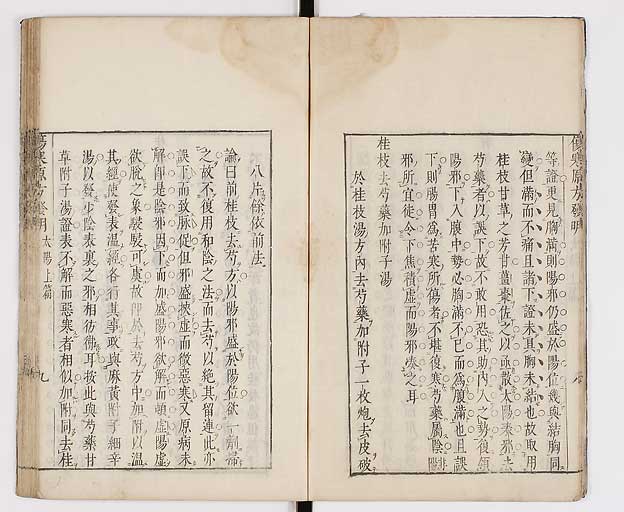 傷寒原方發明
等證更見胸滿則陽邪仍盛於陽位幾與結胸同
變但滿而不痛且諸下證未具胸未結也故取用
桂枝甘草之芳甘薑棗佐之以亟散太陽表邪去
芍藥者以誤下故不敢用恐其助內入之勢復領
陽邪下入腹中勢必胸滿不已而為腹滿也且誤
下則腸胃為苦寒所傷者不堪復寒芍藥屬陰陽
邪所宜徒令下焦積虛而陽邪湊之耳
桂枝去芍藥加附子湯
於桂枝湯方內去芍藥加附子一枚炮去皮破
八片餘依前法
論曰前桂枝去芍方以陽邪盛於陽位欲一劑掃
之故不復用和陰之法而去芍以絶其留連此亦
誤下而致脉促但邪盛挾虛而微惡寒又原病未
解卽是陰邪因下而加盛陽邪欲解而頓虛陽虛
欲脫之象駸駸可虞故卽於去芍方中加附以溫
其經使發表溫經各行其事政與麻黃附子細辛
湯以發少陰表裏之邪相彷彿耳按此與芍藥甘
草附子湯證表不解而惡寒者相似加附同去桂
傷寒原方發明
太陽上篇
九